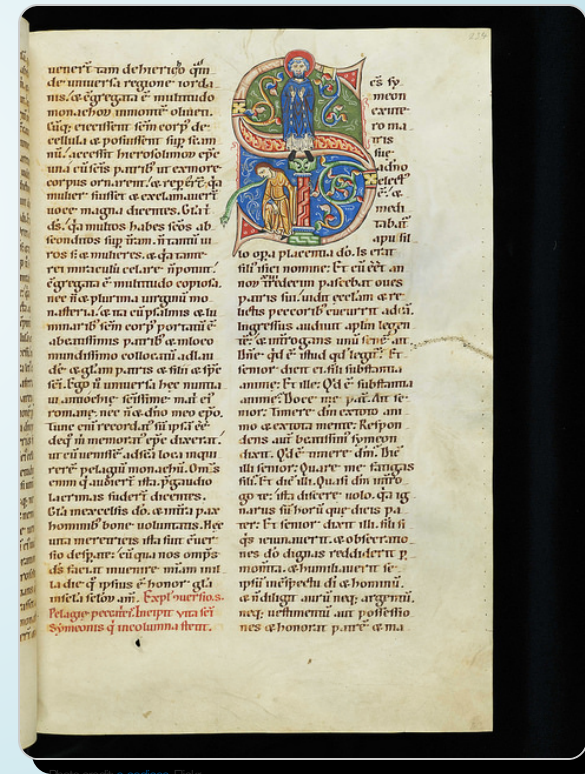 de universa regione iorda
nis. & gregata ē multitudo
monachoꝝ inmonte oliueti.
Cūq; eiecissent scm̄ corp' de
cellula & posuissent sup
accessit hierosolimoꝝ ep̄c
una cū seis patrib; ut ex more
corpus ornarent. & repert ē qa
mulier fuisset & exclamauert
uoce magna dicentes. Glā t̄
ds. qa multos habes scōs ab
sconditos sup trām. n̄ tantū ui
ros s; & mulieres. & qa tante
rei miraculū celare n̄ potuit.
gregata ē multitudo copiosa.
nec n̄ & plurima uirginū mo
nasteria. & ita cū psalmis & lu
minarib; scm̄ corp' portatū ē
ab & mloco
mundissimo collocatū adlau
dē & glam patris & filii & sp̄c
sci. Ego ū universa
romane. nec n̄ & dn̄o meo ep̄o.
Tunc cū recordat' sū
deq; in memorat' ep̄c dixerat.
ut cū uenissē ad scā loca inqui
rerē pelagiū monachū. Om̄s
em̄ q̄ audiert ista. p̄ gaudio
lacrimas fudert dicentes.
Glā in excelsis dō. & in t̄ra pax
hominib; bone uoluntatis. Hec
uita meretricis ista
sio despat:
ds faciat inuenire
la die q̄ ipsius ē honor' glā
insclā sclōꝝ am̄. Expl' .s.
Pelagie peccatricis. Incipit vita sci
Symeonis q̄ incolumna stetit.
S
c̄s sy
meon
exute
ro ma
tris
sue
ē. &
medi
tabat
io opa placentia dō. Is erat
filius nomine. Et cū eēt an
pascebat oues
patris sui. uidit & re
lictis peccorib; cucurrit ad eā.
Ingressus audiuit aplm̄ legen
tē. & interrogans unū senē ait.
Dn̄e. qd ē istud qd legit. Et
senior dicit ei. substantia
anime. Et ille: Qd ē substantia
anime. Doce me pat. Ait se
nior: Timere dm̄ ex toto ani
mo & ex tota mente. Respon
dens aut beatissim' symeon
dixit. Qd ē timere dm̄. Dic
illi senior. Quare me fatigas
fili. Et dic illi. Quasi dm̄ int̄ro
go te. ista discere uolo. qa ig
narus sū horū que dicis pa
ter. Et senior dixit illi. fili si
q̄s ieiunauerit. & obsecratio
nes dō dignas reddiderit p
& humiliauerit se
ipsū in cspectu di & hominū.
& n̄ diligit aurū neq; argentū.
neq; uestimentū aut possessio
nes & honorat patrē & ma